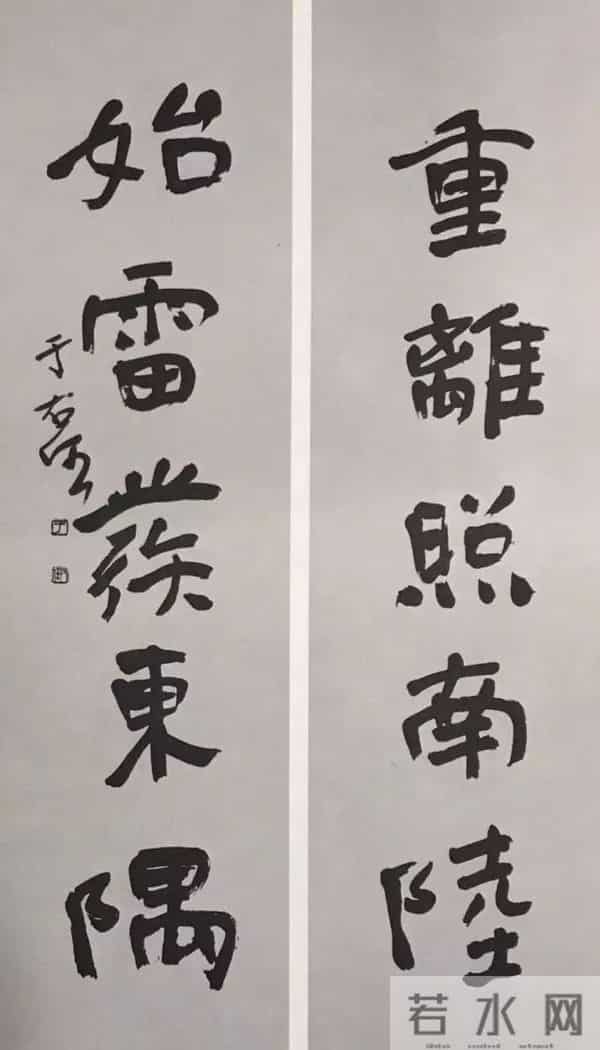 重離照南陸
始雷發東隅
于右任
若水网